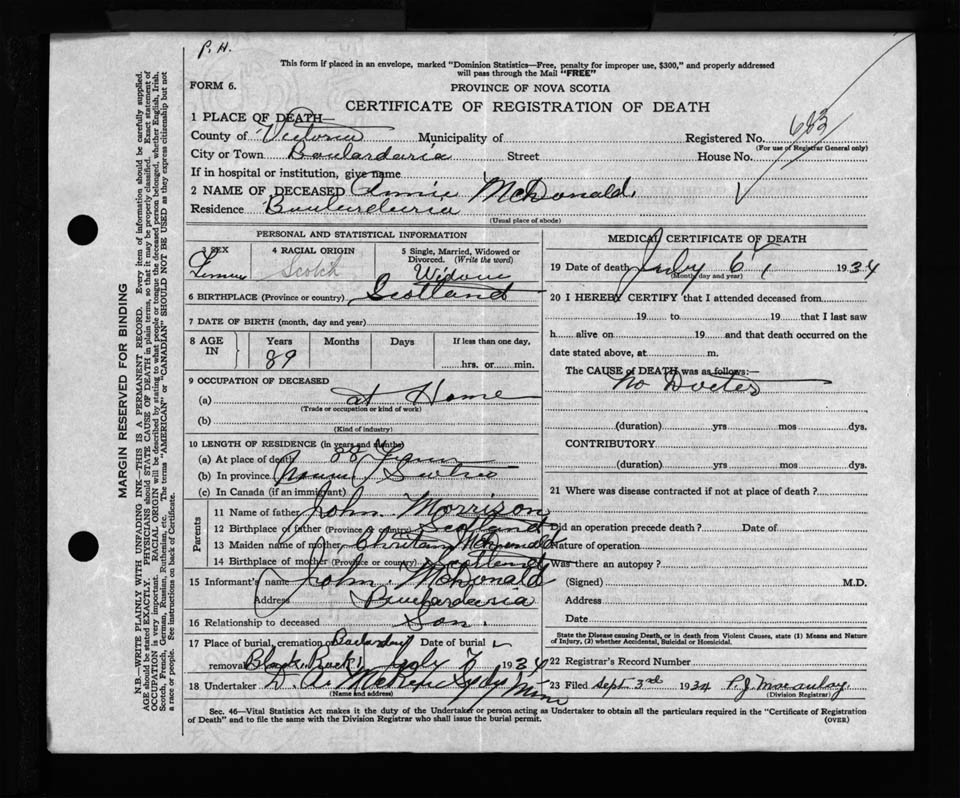 P. H.
This form if placed in an envelope, marked "Dominion Statistics—Free, penalty for improper use, $300," and properly addressed
will pass through the Mail "FREE"
FORM 6.
PROVINCE OF NOVA SCOTIA
CERTIFICATE OF REGISTRATION OF DEATH
683
1 PLACE OF DEATH—
County of Victoria Municipality of Registered No.
(For use of Registrar General only)
City or Town Boulardaria Street House No.
If in hospital or institution, give name
2 NAME OF DECEASED Annie McDonald
Residence Boulardaria
(Usual place of abode)
PERSONAL AND STATISTICAL INFORMATION
3 SEX 4 RACIAL ORIGIN 5 Single, Married, Widowed or Divorced. (Write the word)
Scotch Widow
6 BIRTHPLACE (Province or country) Scotland
7 DATE OF BIRTH (month, day and year)
8 AGE IN Years Months Days If less than one day,
89 hrs. or min.
9 OCCUPATION OF DECEASED
(a) at Home
(Trade or occupation or kind of work)
(b)
(Kind of industry)
10 LENGTH OF RESIDENCE (in years and months)
(a) At place of death 88 Years
(b) In province Nova Scotia
(c) In Canada (if an immigrant)
Parents
11 Name of father John Morrison
12 Birthplace of father (Province or country) Scotland
13 Maiden name of mother McDonald
14 Birthplace of mother (Province or country) Scotland
15 Informant's name John McDonald
Address Boulardaria
16 Relationship to deceased Son.
17 Place of burial, cremation or removal Date of burial
Black Rock July 1934
18 Undertaker D. A.
(Name and address)
MEDICAL CERTIFICATE OF DEATH
19 Date of death July 6 1934
(Month, day and year)
20 I HEREBY CERTIFY that I attended deceased from
19 to 19 that I last saw
h alive on 19 and that death occurred on the
date stated above, at m.
The CAUSE of DEATH was as follows:—
No Doctor
(duration) yrs mos dys.
CONTRIBUTORY
(duration) yrs mos dys.
21 Where was disease contracted if not at place of death?
Did an operation precede death? Date of
Nature of operation
Was there an autopsy?
(Signed) M.D.
Address
Date
State the Disease causing Death, or in death from Violent Causes, state (1) Means and Nature
of Injury, (2) whether Accidental, Suicidal or Homicidal.
22 Registrar's Record Number
23 Filed Sept 3rd 1934 P. J. Macaulay
(Division Registrar)
Sec. 46—Vital Statistics Act makes it the duty of the Undertaker or person acting as Undertaker to obtain all the particulars required in the "Certificate of Registration
of Death" and to file the same with the Division Registrar who shall issue the burial permit.
(OVER)
MARGIN RESERVED FOR BINDING
N.B—WRITE PLAINLY WITH UNFADING INK—THIS IS A PERMANENT RECORD. Every item of information should be carefully supplied.
AGE should be stated EXACTLY. PHYSICIANS should STATE CAUSE OF DEATH in plain terms, so that it may be properly classified. Exact statement of
OCCUPATION is very important. RACIAL ORIGIN will be described by stating to what people or tongue the deceased person belonged, whether English, Irish,
Scotch, French, German, Russian, Ruthenian, etc. The terms "AMERICAN" or "CANADIAN" SHOULD NOT BE USED as they express citizenship but not
a race or people. See instructions on back of Certificate.